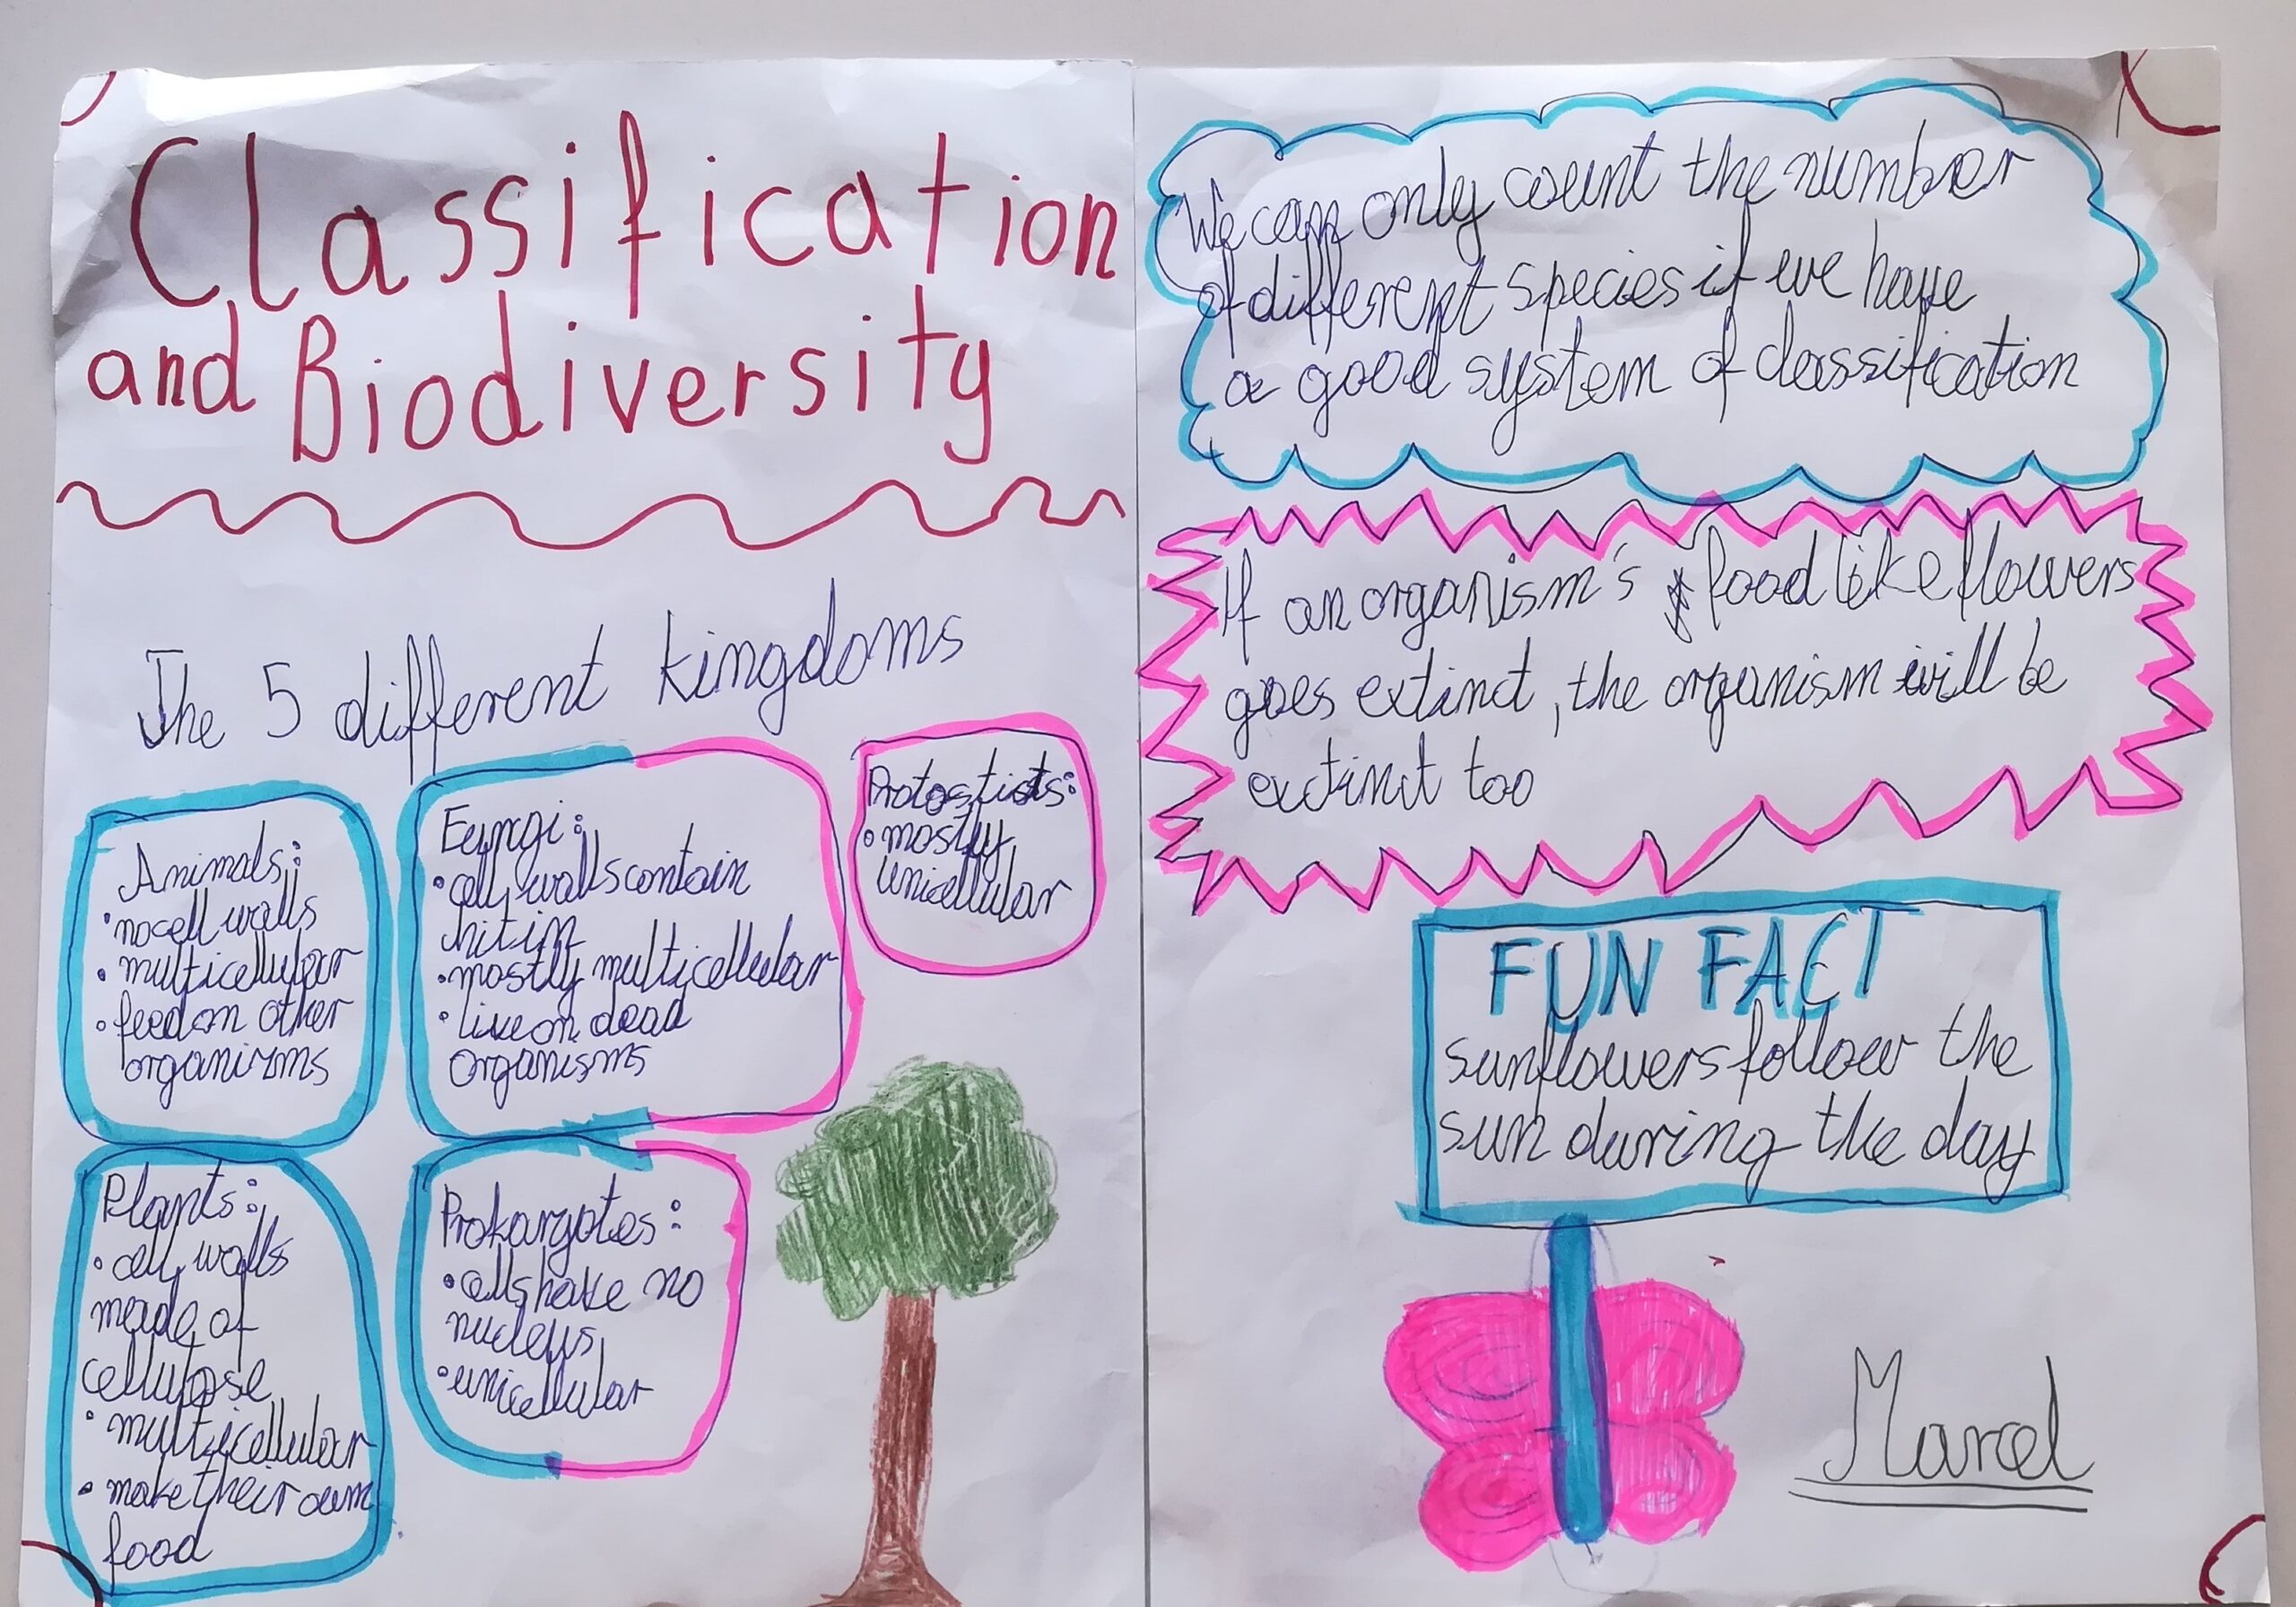 Classification
and Biodiversity
The 5 different kingdoms
Animals:
• no cell walls
• multicellular
• feed on other
organisms
Fungi:
• cell walls contain
hitin
• mostly multicellular
• live on dead
organisms
Protostists:
• mostly
unicellular
Plants:
• cell walls
made of
cellulose
• multicellular
• make their own
food
Prokaryotes:
• cells have no
nucleus
• unicellular
We can only count the number
of different species if we have
a good system of classification
If an organism's food like flowers
goes extinct, the organism will be
extinct too
FUN FACT
sunflowers follow the
sun during the day
Marcel